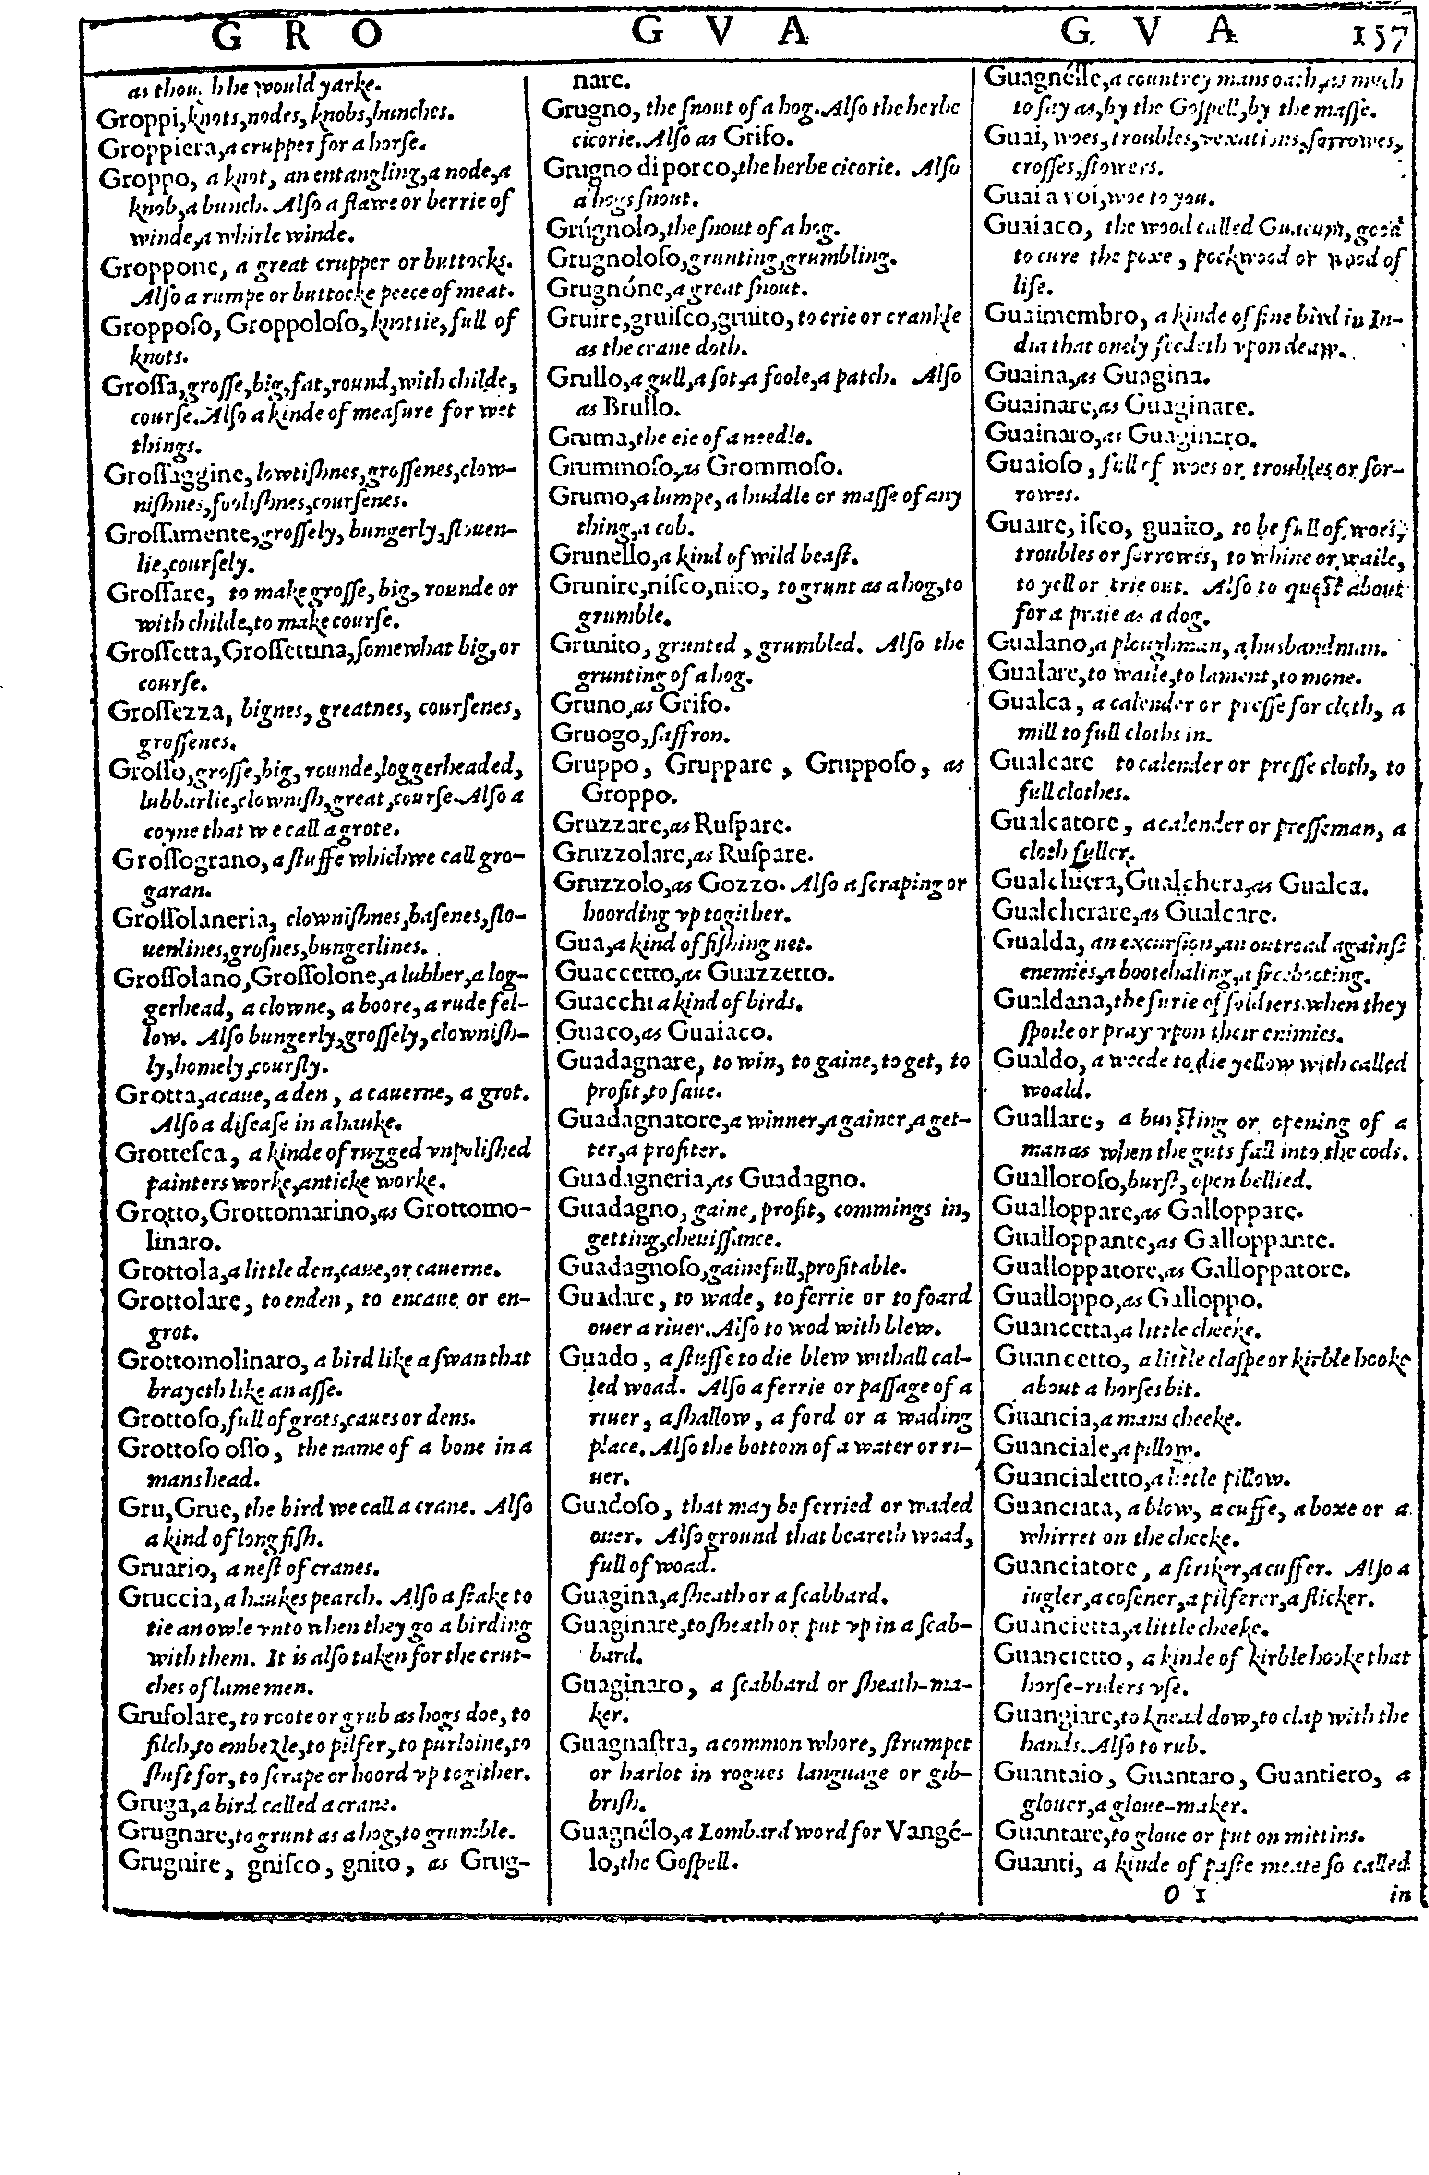 G R O
G V A
G V A 157
as thou h he would yarke.
Groppi, knots, nodes, knobs, bunches.
Groppiera, a crupper for a horse.
Groppo, a knot, an entangling, a node, a
knob, a bunch. Alſo a flawe or berrie of
winde, a whirle winde.
Groppone, a great crupper or buttocks.
Alſo a rumpe or buttocke peece of meat.
Gropposo, Groppoloſo, knottie, full of
knots.
Groſſa, groſſe, big, fat, round, with childe,
courſe. Alſo a kinde of meaſure for wet
things.
Groſſaggine, lowtiſhnes, groſſenes, clow-
niſhnes, fooliſhnes, courſenes.
Groſſamente, groſſely, bungerly, ſlouen-
lie, courſely.
Groſſare, to make groſſe, big, rounde or
with childe, to make courſe.
Groſſetta, Groſſettina, ſomewhat big, or
courſe.
Groſſezza, bignes, greatnes, courſenes,
groſſenes.
Groſſo, groſſe, big, rounde, loggerheaded,
lubbarlie, clowniſh, great, courſe. Alſo a
coyne that we call a grote.
Groſſograno, a ſtuffe which we call gro-
garan.
Groſſolaneria, clowniſhnes, baſenes, ſlo-
uenlines, groſnes, bungerlines.
Groſſolano, Groſſolone, a lubber, a log-
gerhead, a clowne, a boore, a rude fel-
low. Alſo bungerly, groſſely, clowniſh-
ly, homely, courſly.
Grotta, a caue, a den, a cauerne, a grot.
Alſo a diſeaſe in a hauke.
Grotteſca, a kinde of rugged vnpoliſhed
painters worke, anticke worke.
Grotto, Grottomarino, as Grottomo-
linaro.
Grottola, a little den, caue, or cauerne.
Grottolare, to enden, to encaue or en-
grot.
Grottomolinaro, a bird like a ſwan that
brayeth like an aſſe.
Grottoſo, full of grots, caues or dens.
Grottoſo oſſo, the name of a bone in a
mans head.
Gru, Grue, the bird we call a crane. Alſo
a kind of long fiſh.
Gruario, a neſt of cranes.
Gruccia, a haukes pearch. Alſo a ſtake to
tie an owle vnto when they go a birding
with them. It is alſo taken for the crut-
ches of lame men.
Grufolare, to roote or grub as hogs doe, to
filch, to embezle, to pilfer, to purloine, to
ſhift for, to ſcrape or hoord vp togither.
Gruga, a bird called a crane.
Grugnare, to grunt as a hog, to grumble.
Grugnire, gniſco, gnito, as Grug-
nare.
Grugno, the ſnout of a hog. Alſo the herbe
cicorie. Alſo as Grifo.
Grugno di porco, the herbe cicorie. Alſo
a hogs ſnout.
Grúgnolo, the ſnout of a hog.
Grugnoloſo, grunting, grumbling.
Grugnóne, a great ſnout.
Gruire, gruiſco, gruito, to crie or crankle
as the crane doth.
Grullo, a gull, a ſot, a foole, a patch. Alſo
as Brullo.
Gruma, the eie of a needle.
Grummoſo, as Grommoſo.
Grumo, a lumpe, a huddle or maſſe of any
thing, a cob.
Grunello, a kind of wild beaſt.
Grunire, niſco, nito, to grunt as a hog, to
grumble.
Grunito, grunted, grumbled. Alſo the
grunting of a hog.
Gruno, as Grifo.
Gruogo, ſaffron.
Gruppo, Gruppare, Gruppoſo, as
Groppo.
Gruzzare, as Ruſpare.
Gruzzolare, as Ruſpare.
Gruzzolo, as Gozzo. Alſo a ſcraping or
hoording vp togither.
Gua, a kind of fiſhing net.
Guaccetto, as Guazzetto.
Guacchi a kind of birds.
Guaco, as Guaiaco.
Guadagnare, to win, to gaine, to get, to
profit, to ſaue.
Guadagnatore, a winner, a gainer, a get-
ter, a profiter.
Guadagneria, as Guadagno.
Guadagno, gaine, profit, commings in,
getting, cheuiſſance.
Guadagnoſo, gainefull, profitable.
Guadare, to wade, to ferrie or to foard
ouer a riuer. Alſo to wod with blew.
Guado, a ſtuffe to die blew withall cal-
led woad. Alſo a ferrie or paſſage of a
riuer, a ſhallow, a ford or a wading
place. Alſo the bottom of a water or ri-
uer.
Guadoſo, that may be ferried or waded
ouer. Alſo ground that beareth woad,
full of woad.
Guagina, a ſheath or a ſcabbard.
Guaginare, to ſheath or put vp in a ſcab-
bard.
Guaginaro, a ſcabbard or ſheath-ma-
ker.
Guagnaſtra, a common whore, ſtrumpet
or harlot in rogues language or gib-
briſh.
Guagnélo, a Lombard word for Vangé-
lo, the Goſpell.
Guagnélle, a countrey mans oath, as much
to ſay as, by the Goſpell, by the maſſe.
Guai, woes, troubles, vexations, ſorrowes,
croſſes, ſtowers.
Guai a voi, woe to you.
Guaiaco, the wood called Guacum, good
to cure the poxe, pockwood or wood of
life.
Guaimembro, a kinde of fine bird in In-
dia that onely feedeth vpon deaw.
Guaina, as Guagina.
Guainare, as Guaginare.
Guainaro, as Guaginaro.
Guaioſo, full of woes or troubles or ſor-
rowes.
Guaire, iſco, guaito, to be full of woes,
troubles or ſorrowes, to whine or waile,
to yell or crie out. Alſo to queſt about
for a praie as a dog.
Gualano, a ploughman, a husbandman.
Gualare, to waile, to lament, to mone.
Gualca, a calender or preſſe for cloth, a
mill to full cloths in.
Gualcare to calender or preſſe cloth, to
full clothes.
Gualcatore, a calender or preſſeman, a
cloth fuller.
Gualchiera, Gualchera, as Gualca.
Gualcherare, as Gualcare.
Gualda, an excurſion, an outroad againſt
enemies, a bootehaling, a freebooting.
Gualdana, the furie of ſoldiers when they
ſpoile or pray vpon their enimies.
Gualdo, a weede to die yellow with called
woald.
Guallare, a burſting or opening of a
man as when the guts fall into the cods.
Gualloroſo, burſt, open bellied.
Gualloppare, as Galloppare.
Gualloppante, as Galloppante.
Gualloppatore, as Galloppatore.
Gualloppo, as Galloppo.
Guancetta, a little cheeke.
Guancetto, a little claſpe or kirble hooke
about a horſes bit.
Guancia, a mans cheeke.
Guanciale, a pillow.
Guancialetto, a little pillow.
Guanciata, a blow, a cuffe, a boxe or a
whirret on the cheeke.
Guanciatore, a ſtriker, a cuffer. Alſo a
iugler, a coſener, a pilferer, a ſlicker.
Guancietta, a little cheeke.
Guancietto, a kinde of kirble hooke that
horſe-riders vſe.
Guangiare, to knead dow, to clap with the
hands. Alſo to rub.
Guantaio, Guantaro, Guantiero, a
glouer, a gloue-maker.
Guantare, to gloue or put on mittins.
Guanti, a kinde of paſte meate ſo called
O 1 in